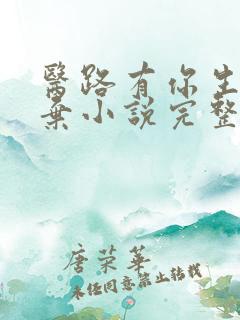 醫路有你生
棄小說完整
唐荣華
未经同意禁止转载